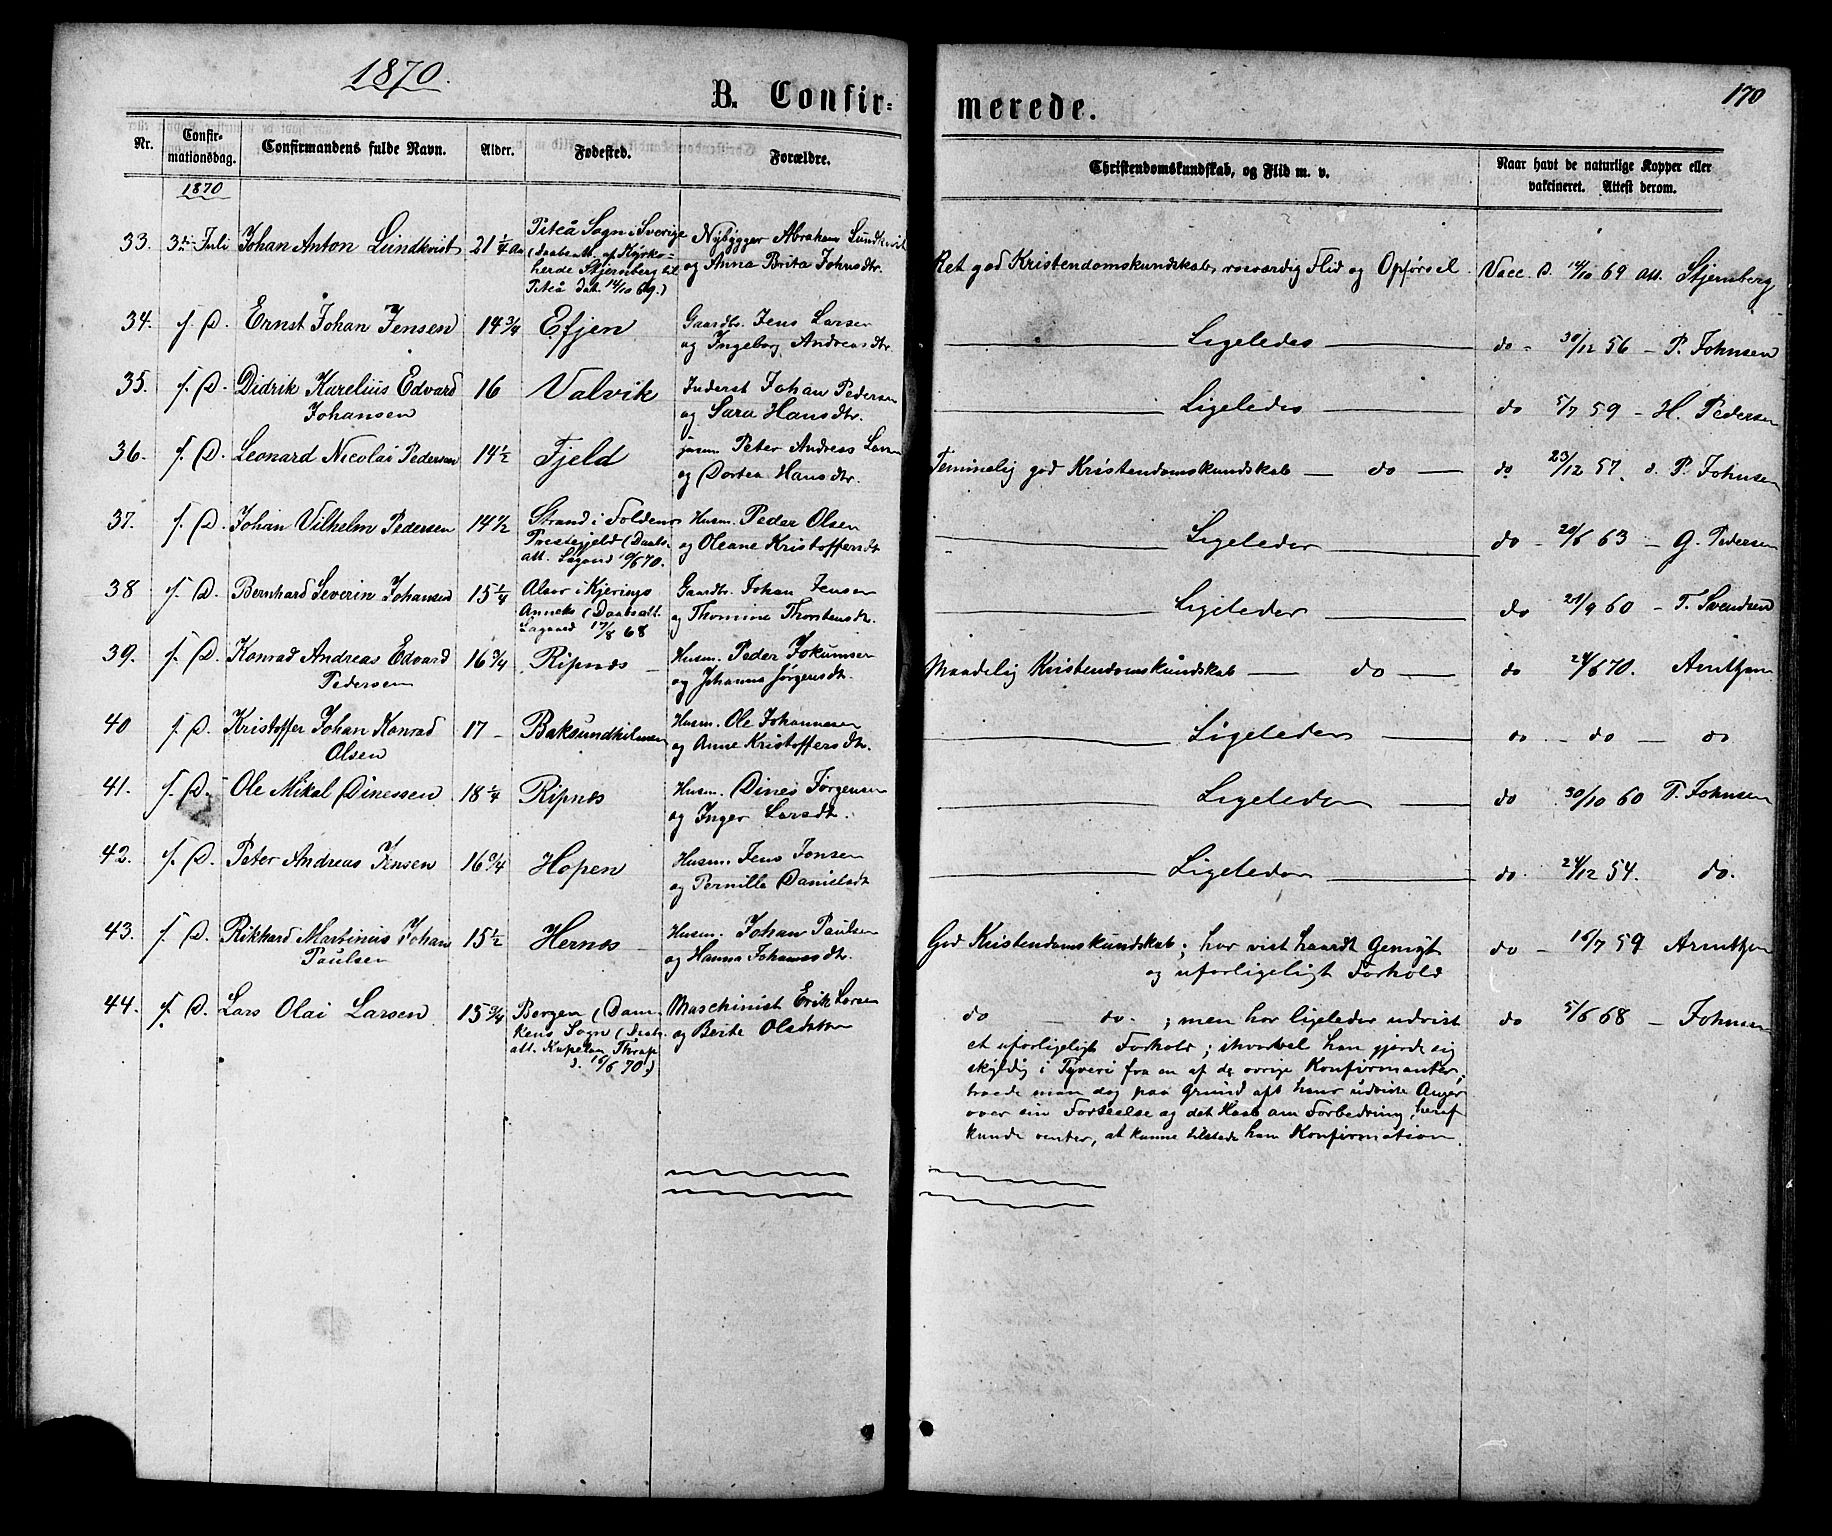 1870.
170
B. Confir=
merede.
Nr.
Confir-
mationsdag.
Confirmandens fulde Navn.
Alder.
Fødested.
Forældre.
Christendomskundskab, og Flid m. v.
Naar havt de naturlige Kopper eller
vakcineret. Attest derom.
1870
33. 3. Juli Johan Anton Lundkvist 21 1/4 Aar Piteå Sogn i Sverige Nybygger Abraham Lundkvist
(Daabsatt. af Kyrko- og Anna Brita Johnsdtr.
herde Stjernberg til
Piteå dat. 14/10 69.)
Ret god Kristendomskundskab, rosværdig Flid og Opførsel Vacc. d. 14/10 69 att. Stjernberg
34. s. D. Ernst Johan Jensen 14 3/4 Efjen Gaardbr. Jens Larsen
og Ingeborg Andreasdtr.
Ligeledes do - 30/12 56 - P. Johnsen
35. s. D. Didrik Karelius Edvard 16 Valvik Inderst Johan Pedersen
Johansen og Sara Hansdtr.
Ligeledes do 5/7 59 - H. Pedersen
36. s. D. Leonard Nicolai Pedersen 14 1/2 Fjeld Peter Andreas
og Dortea Hansdtr.
Temmelig god Kristendomskundskab — do — do 23/12 57. P. Johnsen
37. s. D. Johan Vilhelm Pedersen 14 1/2 Strand i Foldens Husm. Peder Olsen
Prestegjeld (Daabs- og Oleane Kristoffersdt
att.
Ligeledes do - 20/6 63 - G. Pedersen
38 s. D. Bernhard Severin Johansen 15 1/4 i Kjeringø Gaardbr. Johan Jensen
Anneks (Daabsatt. og Thomine Thorstensdtr.
17/8 68
Ligeledes do 21/9 60 - T. Svendsen
39. s. D. Konrad Andreas Edvard 16 3/4 Ripnæs Husm. Peder Jokumsen
Pedersen og Johanna Jørgensdtr.
Maadelig Kristendomskundskab — do — do 24/6 70. Arntzen
40 s. D. Kristoffer Johan Konrad 17 - Baksundholmen Husm. Ole Johannesen
Olsen og Anne Kristoffersdtr.
Ligeledes do - do - do
41. s. D. Ole Mikal Dinessen 18 1/4 Ripnæs Husm. Dines Jørgensen
og Inger Larsdt.
Ligeledes do 30/10 60 P. Johnsen
42. s. D. Peter Andreas Jensen 16 3/4 Hopen Husm. Jens Jonsen
og Pernille Danielsdt
Ligeledes do 24/12 54. do.
43. s. D. Rikhard Martinus Johan 15 1/2 Hernæs Husm. Johan Paulsen
Paulsen og Hanna Johannesdtr.
God Kristendomskundskab; har vist haardt Gemyt do - 16/7 59 Arntzen
og uforligeligt Forhold
44. s. D. Lars Olai Larsen 15 3/4 Bergen (Dom- Maschinist Erik Larsen
kens Sogn ( og Berte Olsdatter
att. Kapelan Thrap
d. 16/6 70)
do — do. ; men har ligeledes udvist do 5/6 68 - Johnsen
et uforligeligt Forhold; ihvorvel han gjorde sig
skyldig i Tyveri fra en af de øvrige Konfirmanter,
troede man dog paa Grund af hans udviste Anger
over sin Forseelse og det Haab om Forbedring, heraf
kunde ventes, at kunne tilstede ham Konfirmation.